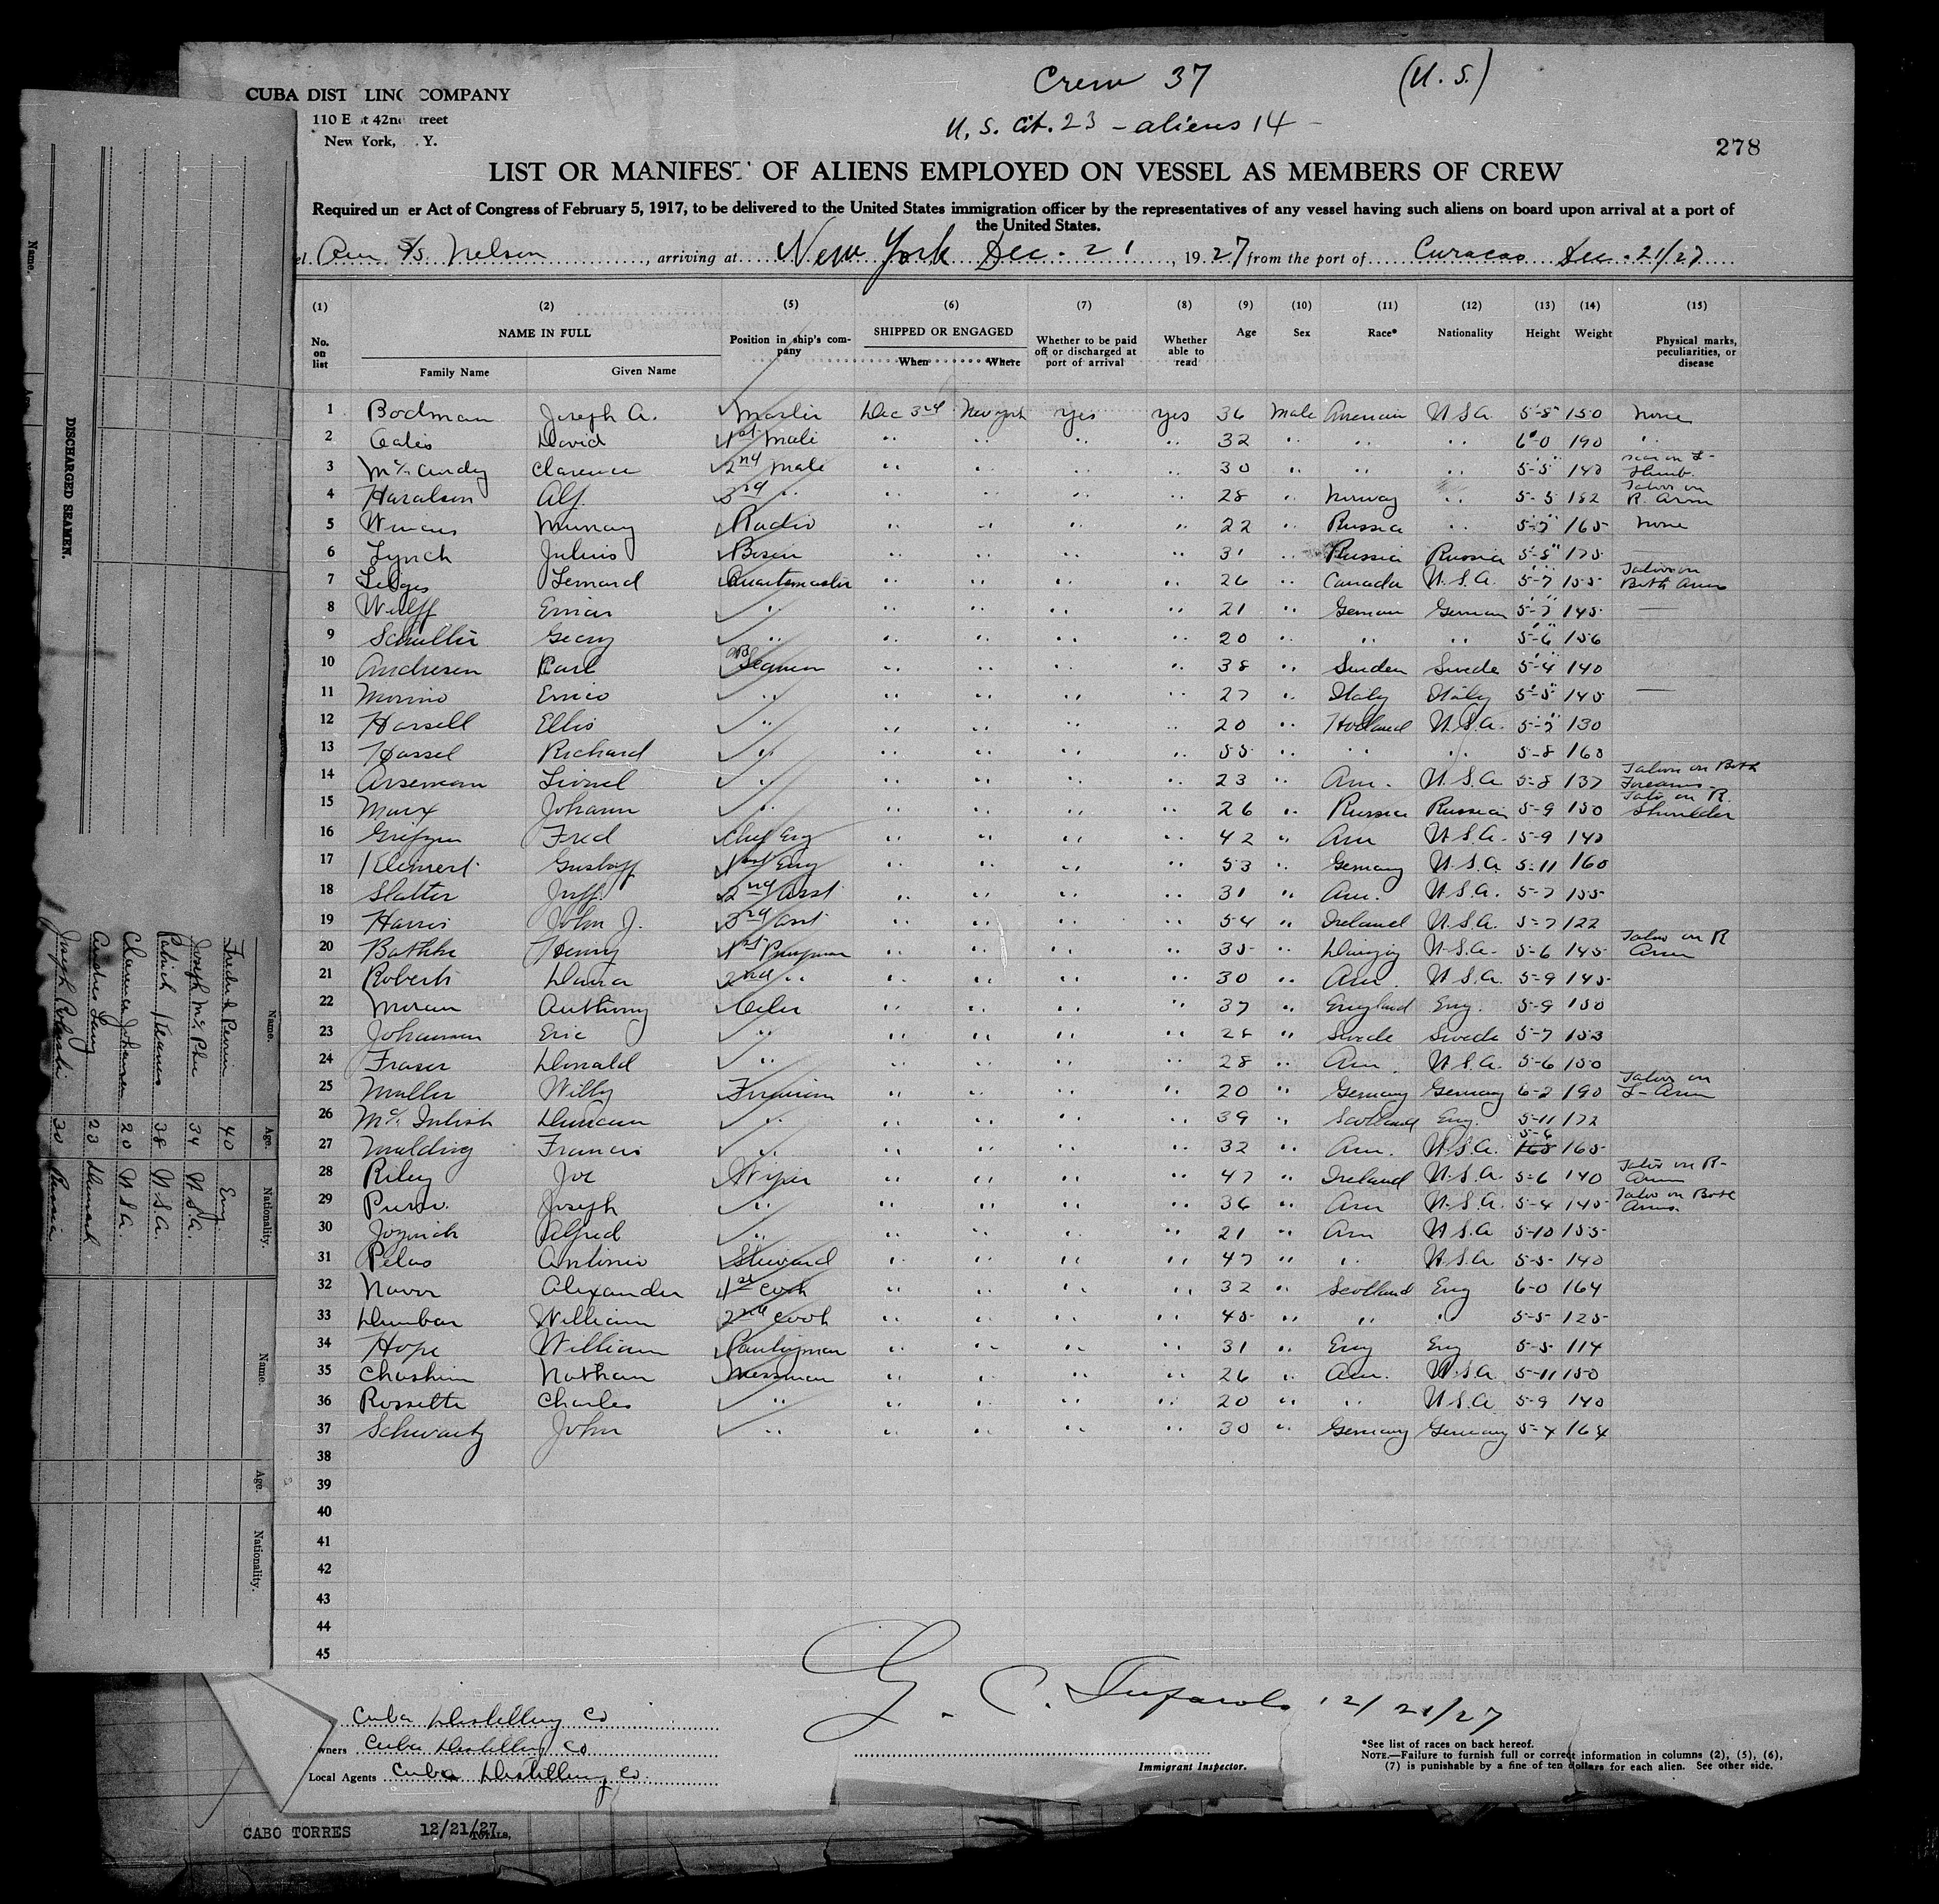 CUBA DIST LING COMPANY
110 E t 42nd treet
New York, . Y.
Crew 37 (U. S.)
U. S. Cit. 23 - aliens 14 -
278
LIST OR MANIFEST OF ALIENS EMPLOYED ON VESSEL AS MEMBERS OF CREW
Required un er Act of Congress of February 5, 1917, to be delivered to the United States immigration officer by the representatives of any vessel having such aliens on board upon arrival at a port of
the United States.
el Am S/S Nelson, arriving at New York Dec. 21, 1927 from the port of Curacao Dec. 21/27
(1) (2) (5) (6) (7) (8) (9) (10) (11) (12) (13) (14) (15)
No. on list NAME IN FULL Family Name Given Name Position in ship's company SHIPPED OR ENGAGED When Where Whether to be paid off or discharged at port of arrival Whether able to read Age Sex Race* Nationality Height Weight Physical marks, peculiarities, or disease
1 Bodman Joseph A. Master Dec 3rd New York yes yes 36 Male American U.S.A. 5-8 150 none
2 David 1st Mate " " " " 32 " " " 6-0 190 "
3 Clarence 2nd Mate " " " " 30 " " " 5-5 140 scar on L- thumb.
4 Haralsen Alf. 3rd " " " " " 28 " Norway " 5-5 182 Tatoo on R. Arm
5 Murray Radio " " " " 22 " Russia " 5-7 165 none
6 Lynch Julius Bosun " " " " 31 " Russia Russia 5-8 175
7 Lenard Quartermaster " " " " 26 " Canada U.S.A. 5-7 155 Tatoos on Both Arms
8 Wulff " " " " " 21 " German German 5-7 145 —
9 " " " " " 20 " " " 5-6 156
10 Andresen Karl AB Seaman " " " " 38 " Sweden Swede 5-4 140
11 Morino " " " " " 27 " Italy Italy 5-5 145 —
12 Harsell Ellis " " " " " 20 " Holland U.S.A. 5-7 130
13 Hassel Richard " " " " " 55 " " " 5-8 160
14 Arseman Lionel " " " " " 23 " Am. U.S.A. 5-8 137 Tatoos on Both Forearms
15 Marx Johann " " " " " 26 " Russia Russian 5-9 150 Tatoo on R. Shoulder
16 Fred Chief Eng " " " " 42 " Am U.S.A. 5-9 140
17 Klemert Gustoff 1st Eng " " " " 53 " Germany U.S.A. 5-11 160
18 Slatter Jeff. 2nd Asst " " " " 31 " Am. U.S.A. 5-7 155
19 Harris John J. 3rd Asst " " " " 54 " Ireland U.S.A. 5-7 122
20 Henry 1st Pumpman " " " " 35 " Danzig U.S.A. 5-6 145 Tatoo on R Arm
21 Roberts Dana 2nd " " " " " 30 " Am. U.S.A. 5-9 145
22 Moran Anthony Oiler " " " " 37 " England Eng. 5-9 150
23 Johansson Eric " " " " " 28 " Swede Swede 5-7 153
24 Fraser Donald " " " " " 28 " Am. U.S.A. 5-6 150
25 Muller Willy Fireman " " " " 20 " Germany Germany 6-2 190 Tatoo on L- Arm
26 Duncan " " " " " 39 " Scotland Eng. 5-11 172
27 Moulding Francis " " " " " 32 " Am. U.S.A. 5-6 165
28 Riley Joe Wiper " " " " 47 " Ireland U.S.A. 5-6 140 Tatoo on R- Arm
29 Joseph " " " " " 36 " Am U.S.A. 5-4 145 Tatoo on Both Arms.
30 Alfred " " " " " 21 " Am U.S.A. 5-10 155
31 Pelas Antonio Steward " " " " 47 " " U.S.A. 5-5 140
32 Alexander 1st Cook " " " " 32 " Scotland Eng 6-0 164
33 Dunbar William 2nd Cook " " " " 45 " " " 5-5 125
34 Hope William Pantryman " " " " 31 " Eng Eng 5-5 114
35 Chashim Nathan Messman " " " " 26 " Am. U.S.A. 5-11 150
36 Rossette Charles " " " " " 20 " " U.S.A. 5-9 140
37 Schwartz John " " " " " 30 " Germany Germany 5-4 164
38
39
40
41
42
43
44
45
G. C. 12/21/27
Cuba Distilling Co
wners Cuba Distilling Co
Local Agents Cuba Distilling Co.
Immigrant Inspector.
*See list of races on back hereof.
NOTE.—Failure to furnish full or correct information in columns (2), (5), (6),
(7) is punishable by a fine of ten dollars for each alien. See other side.
CABO TORRES 12/21/27
TOTALS,
DISCHARGED SEAMEN.
Name. Age. Nationality. Name. Age. Nationality.
Frederick 40 Eng.
Joseph McPhee 34 U.S.A.
Patrick 38 U.S.A.
Clarence Johnson 20 U.S.A.
Andres Lang 23 Denmark
Joseph 30 Russia
Name.